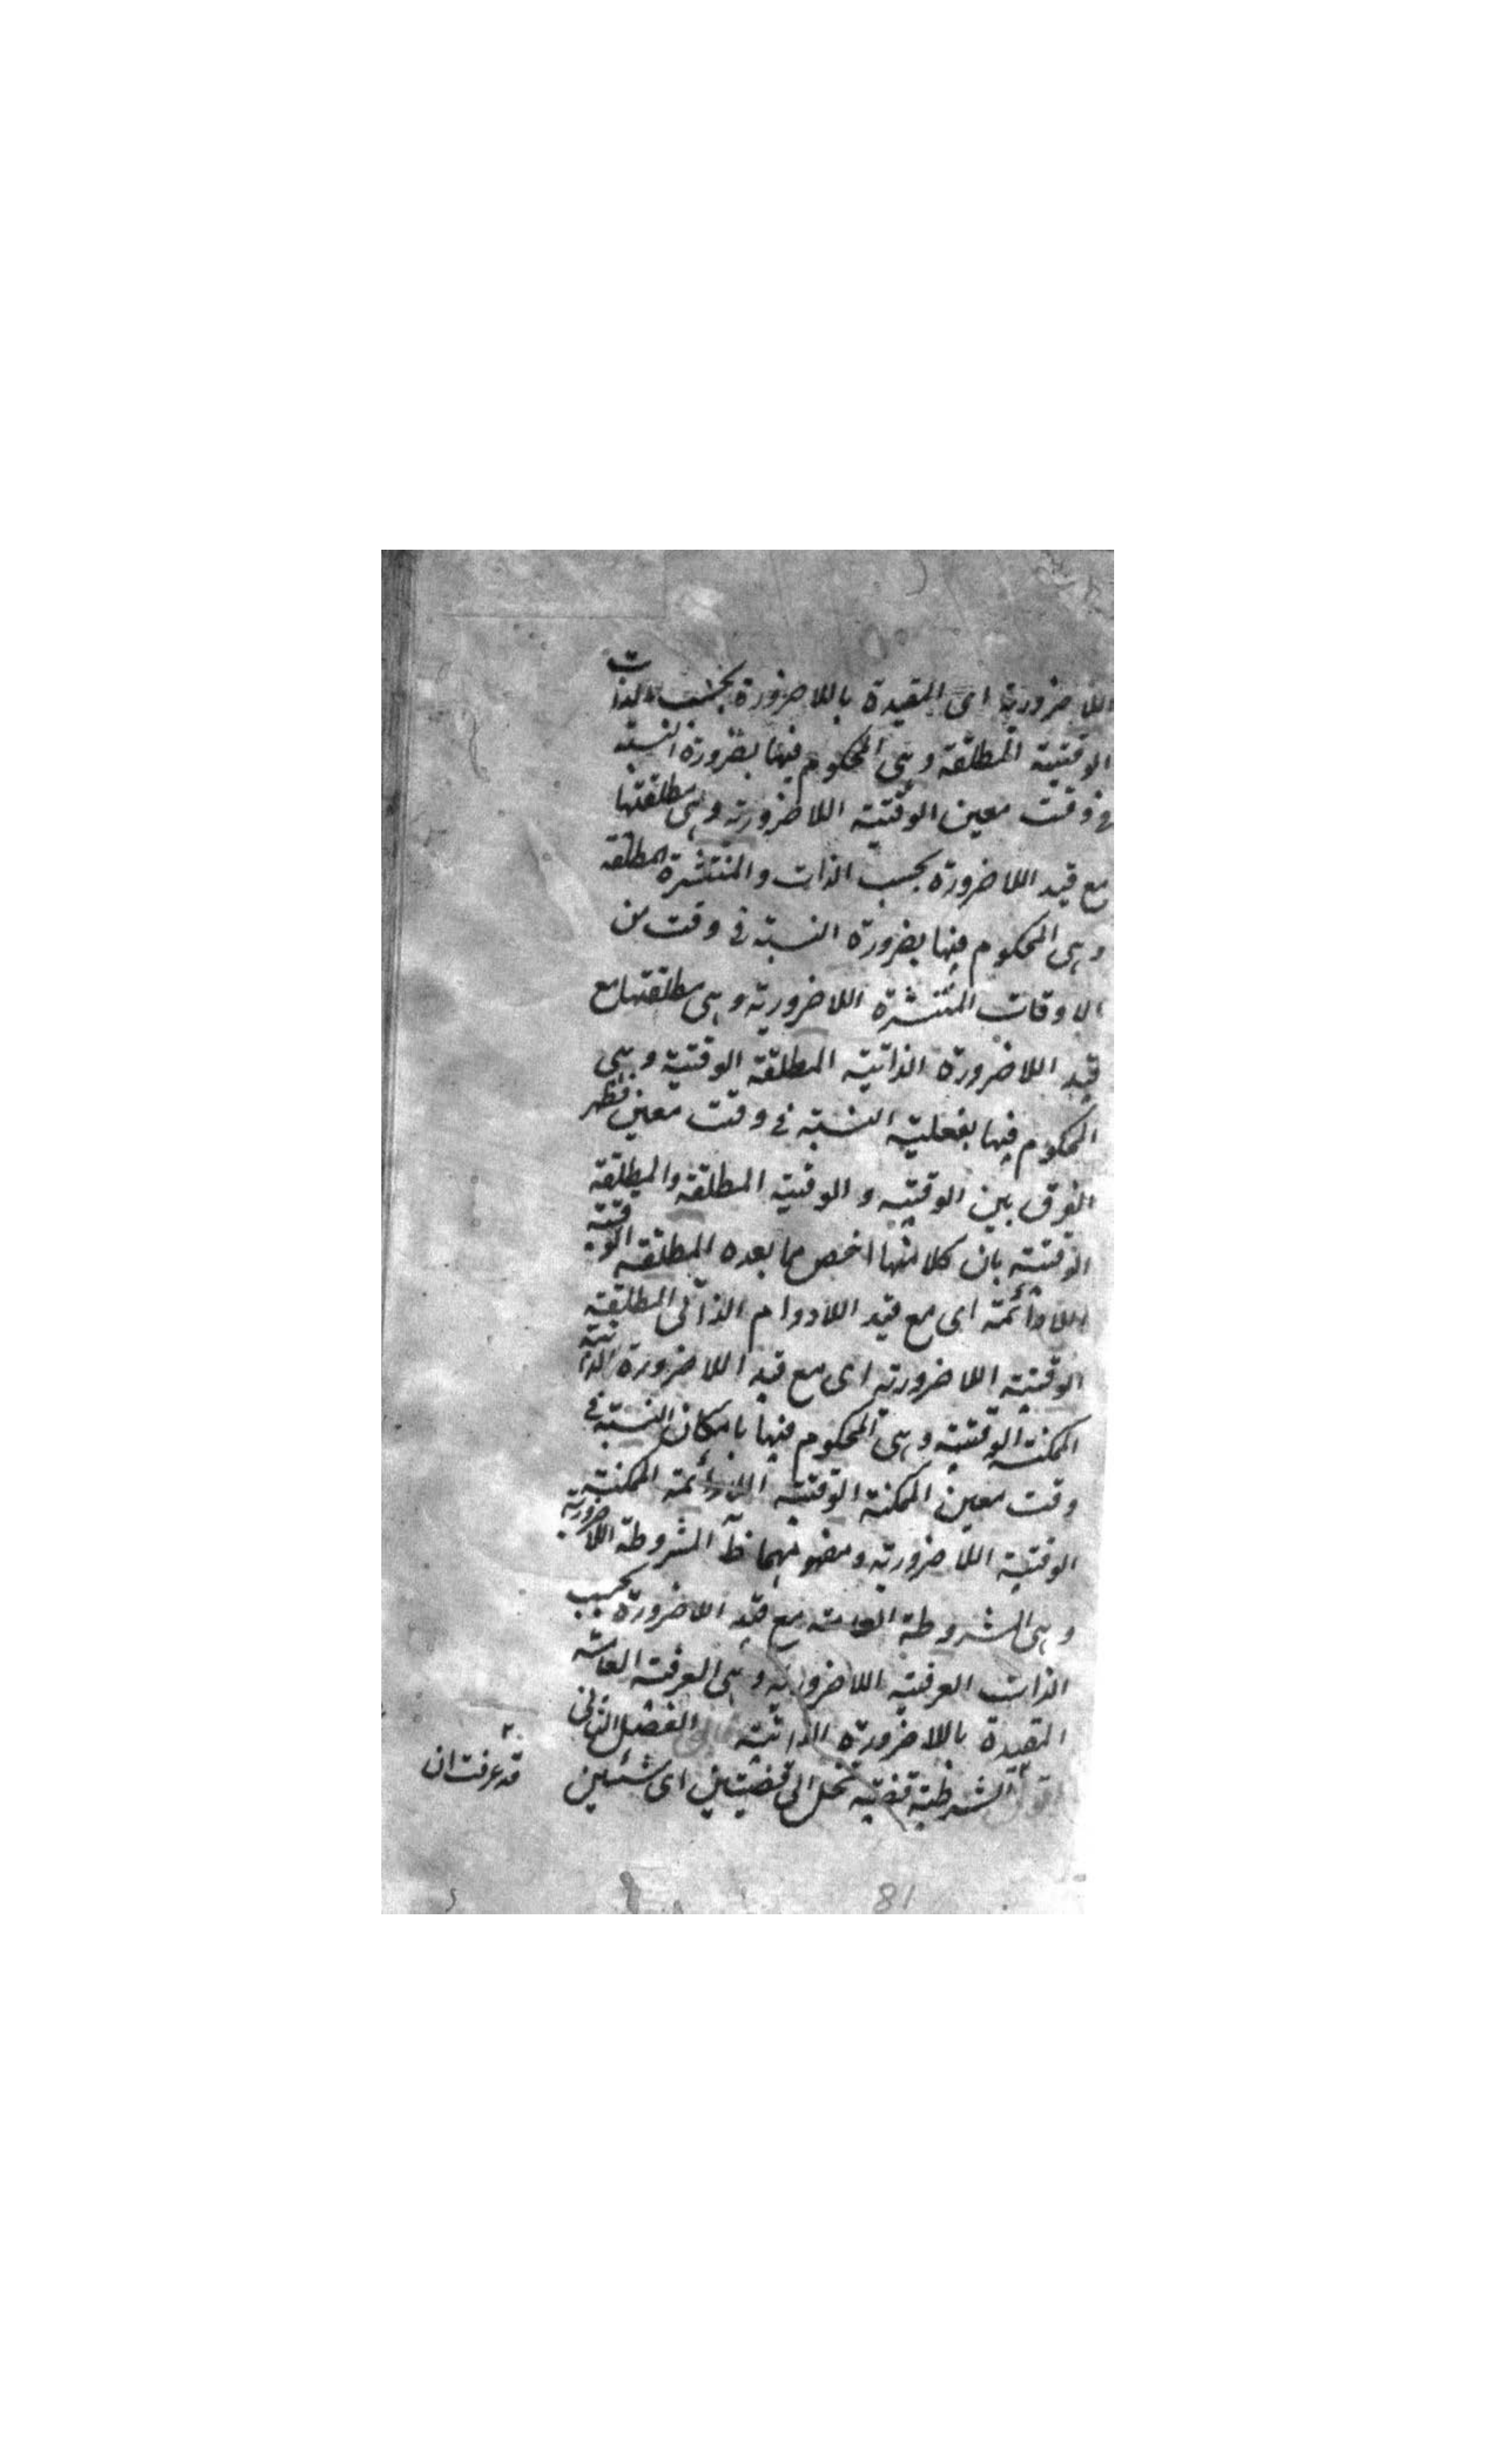 اللاضرورية اى المقيدة باللاضرورة بحسب الذات
الوقتية المطلقة وهى المحكوم فيها بضرورة النسبة
فى وقت معين الوقتية اللاضرورية وهى مطلقتها
مع قيد اللاضرورة بحسب الذات والمنتشرة المطلقة
وهى المحكوم فيها بضرورة النسبة فى وقت من
الاوقات المنتشرة اللاضرورية وهى مطلقتها مع
قيد اللاضرورة الذاتية المطلقة الوقتية وهى
المحكوم فيها بفعلية النسبة فى وقت معين فظهر
الفرق بين الوقتية و الوقتية المطلقة والمطلقة
الوقتية بان كلا منها اخص مما بعده المطلقة الوقتية
اللادائمة اى مع قيد اللادوام الذاتى المطلقة
الوقتية اللاضرورية اى مع قيد اللاضرورة الذاتية
الممكنة الوقتية وهى المحكوم فيها بامكان النسبة فى
وقت معين الممكنة الوقتية اللادائمة الممكنة
الوقتية اللاضرورية ومفهومهما ظ المشروطة اللاضرورية
وهى المشروطة العامة مع قيد اللاضرورة بحسب
الذات العرفية اللاضرورية وهى العرفية العامة
المقيدة باللاضرورة الذاتية قال الفصل الثانى
اقول الشرطية قضية تنحل الى قضيتين اى شيئين
قد عرفت ان
81